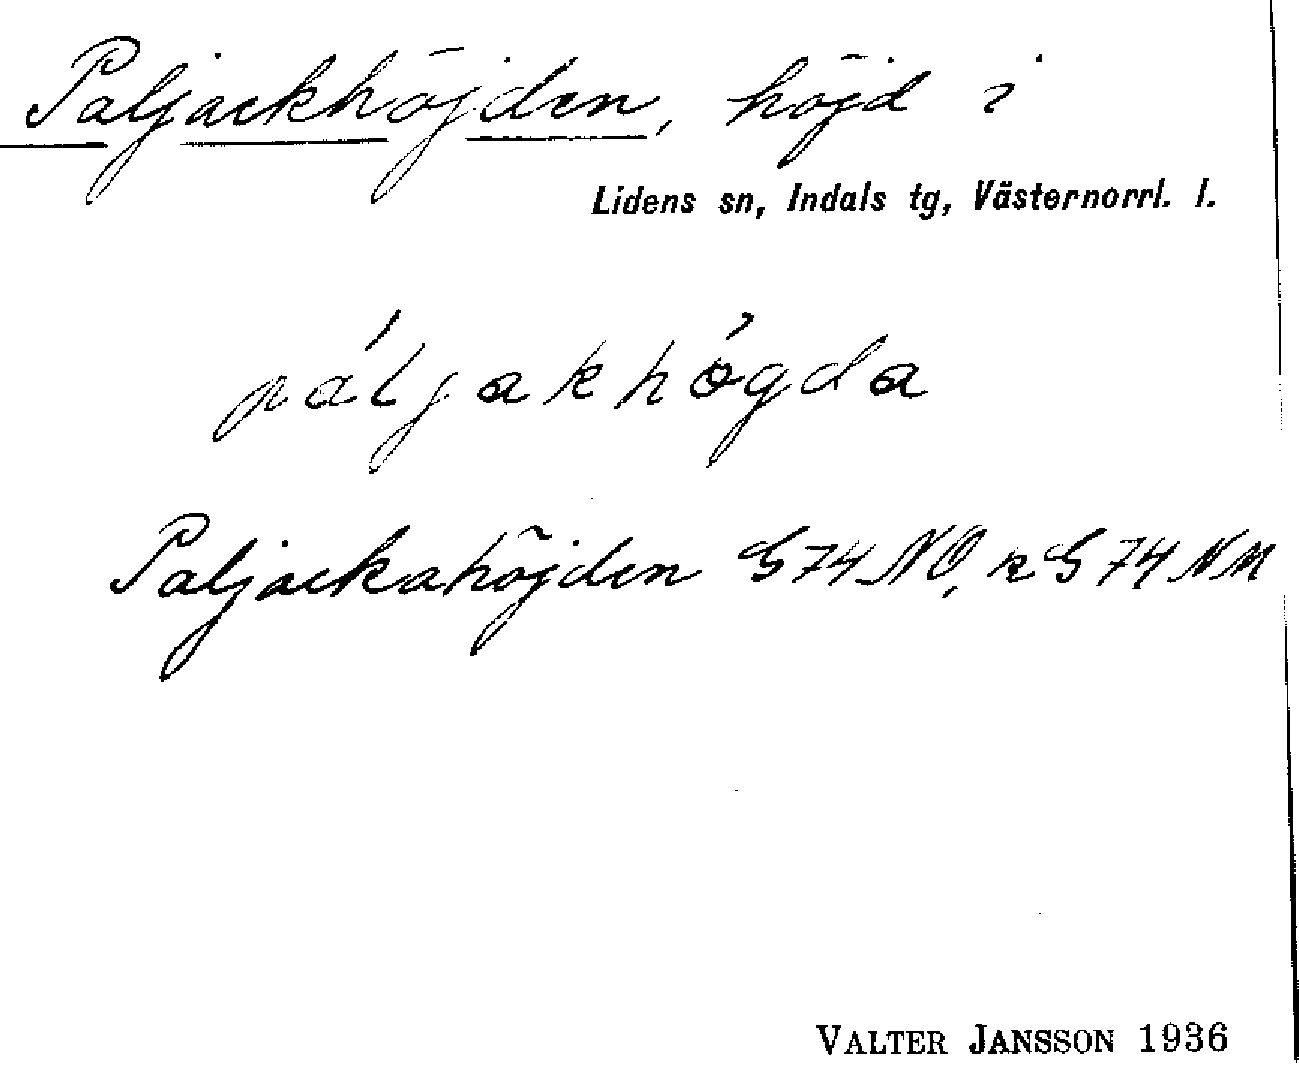 Paljackhöjden, höjd i
Lidens sn, Indals tg, Västernorrl. l.
páljakhògda
Paljackahöjden G74NO, G74NV
VALTER JANSSON 1936